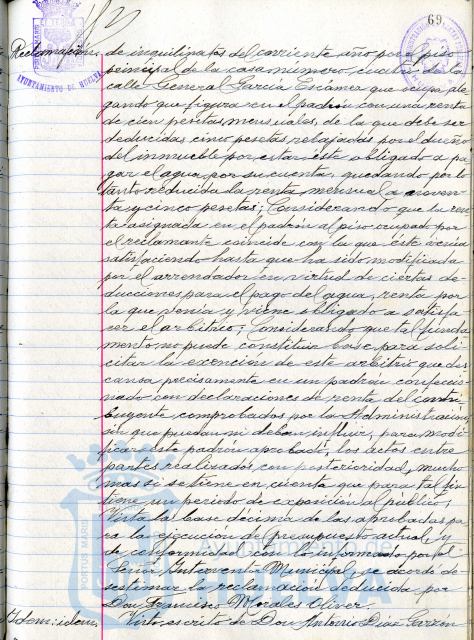 69.
AYUNTAMIENTO DE HUELVA
Reclamación, de inquilinatos del corriente año por el piso
principal de la casa número cuatro de la
calle General García Escámez que ocupa, ale
gando que figura en el padrón con una renta
de cien pesetas mensuales, de la que debe ser
deducidas cinco pesetas rebajadas por el dueño
del inmueble por estar este obligado a pa
gar el agua por su cuenta, quedando por lo
tanto reducida la renta mensual a noven
ta y cinco pesetas; Considerando que la ren
ta asignada en el padrón al piso ocupado por
el reclamante coincide con la que éste venía
satisfaciendo hasta que ha sido modificada
por el arrendador en virtud de ciertas de
ducciones para el pago del agua, renta por
la que venía y viene obligado a satisfa
cer el arbitrio; Considerando que tal funda
mento no puede constituir base para soli
citar la exención de este arbitrio que des
cansa precisamente en un padrón confeccio
nado con declaraciones de renta del contri
buyente comprobados por la Administración,
sin que puedan ni deban influir, para modi
ficar este padrón aprobado, los actos entre
partes realizados con posterioridad, mucho
mas si se tiene en cuenta que para tal fin
tiene un periodo de exposición al público;
Vista la base décima de las aprobadas pa
ra la ejecución del presupuesto actual y
de conformidad con lo informado por el
Señor Interventor Municipal, se acordó de
sestimar la reclamación deducida por
Don Francisco Morales Oliver.
Idem: idem. Visto escrito de Don Antonio Díaz Garzón
PORTUM MARIS
Ayuntamiento de
HUELVA